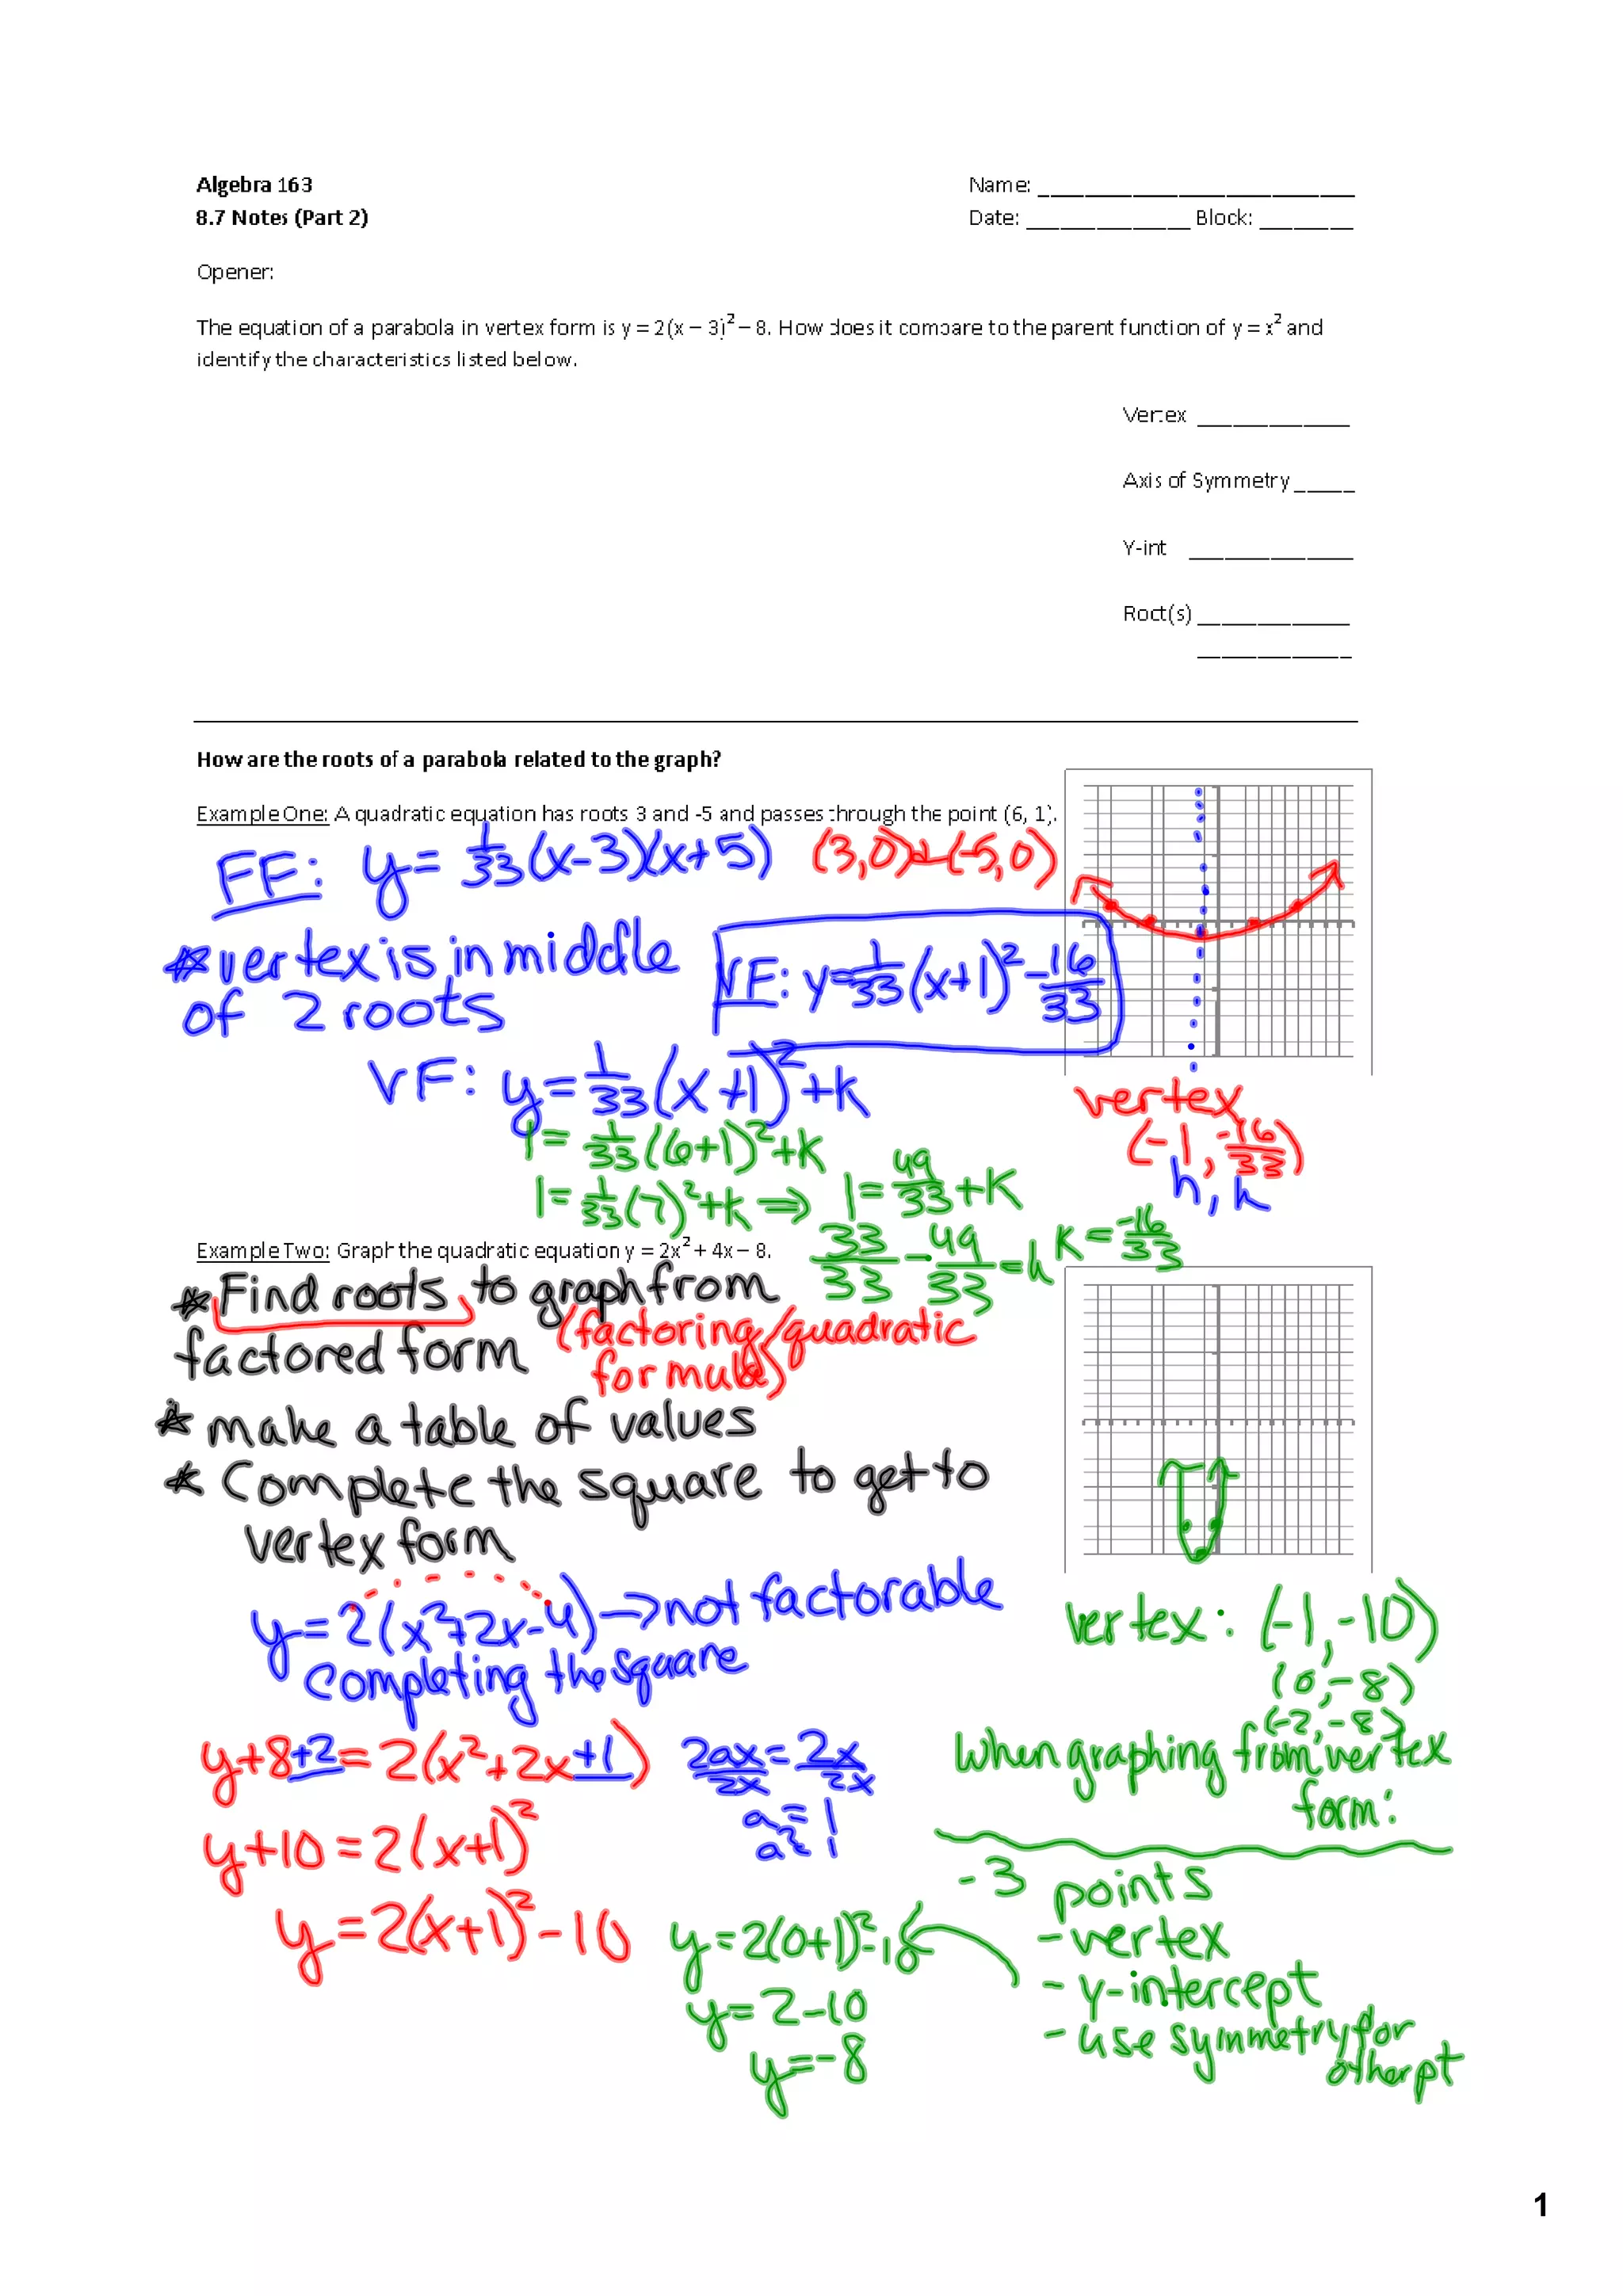 Algebra 163
Name: ____________________
8.7 Notes (Part 2)
Date: ____________ Block: _______
Opener:
The equation of a parabola in vertex form is y = 2(x – 3)² – 8. How does it compare to the parent function of y = x² and
identify the characteristics listed below.
Vertex ____________
Axis of Symmetry _____
Y-int ____________
Root(s) ____________
____________
How are the roots of a parabola related to the graph?
Example One: A quadratic equation has roots 3 and -5 and passes through the point (6, 1).
FF: y = 1/33(x-3)(x+5) (3,0)+(-5,0)
*vertex is in middle
of 2 roots
VF: y=1/33(x+1)²-16/33
VF: y=1/33(x+1)²+k
vertex
(-1, -16/33)
h, k
1= 1/33(6+1)²+k
1=1/33(7)²+k ⇒ 1=49/33+k
33/33 - 49/33 = k k = -16/33
Example Two: Graph the quadratic equation y = 2x² + 4x – 8.
*Find roots to graph from
factored form (factoring/quadratic
formula)
* make a table of values
* Complete the square to get to
vertex form
y=2(x²+2x-4)→not factorable
Completing the square
vertex: (-1,-10)
(0,-8)
(-2,-8)
y+8+2=2(x²+2x+1)
2ax=2x
2x 2x
a=1
a²=1
y+10=2(x+1)²
y=2(x+1)²-10
When graphing from vertex
form:
-3 points
-vertex
-y-intercept
-use symmetry for
other pt
y=2(0+1)²-10
y=2-10
y=-8
1